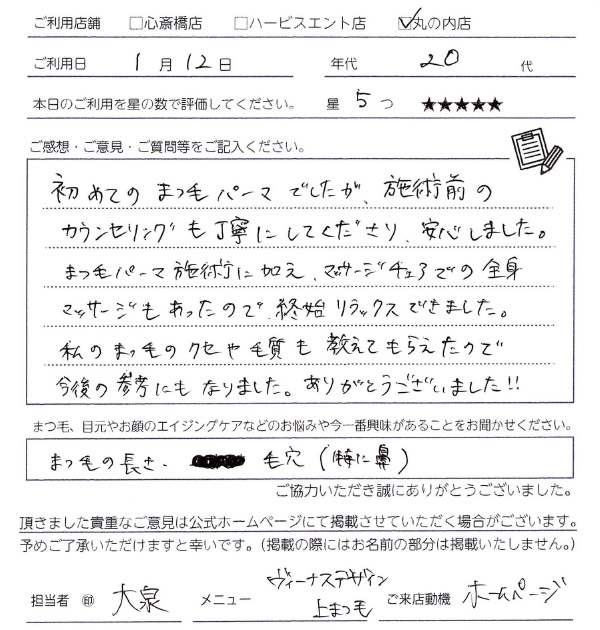 ご利用店舗 □心斎橋店 □ハービスエント店 ☑丸の内店
ご利用日 1月12日 年代 20代
本日のご利用を星の数で評価してください。 星 5つ ★★★★★
ご感想・ご意見・ご質問等をご記入ください。
初めてのまつ毛パーマでしたが、施術前の
カウンセリングも丁寧にしてくださり、安心しました。
まつ毛パーマ施術に加え、マッサージチェアでの全身
マッサージもあったので、終始リラックスできました。
私のまつ毛のクセや毛質も教えてもらえたので
今後の参考にもなりました。ありがとうございました!!
まつ毛、目元やお顔のエイジングケアなどのお悩みや今一番興味があることをお聞かせください。
まつ毛の長さ、毛穴(特に鼻)
ご協力いただき誠にありがとうございました。
頂きました貴重なご意見は公式ホームページにて掲載させていただく場合がございます。
予めご了承いただけますと幸いです。(掲載の際にはお名前の部分は掲載いたしません。)
担当者 ㊞ 大泉 メニュー ヴィーナスデザイン 上まつ毛 ご来店動機 ホームページ